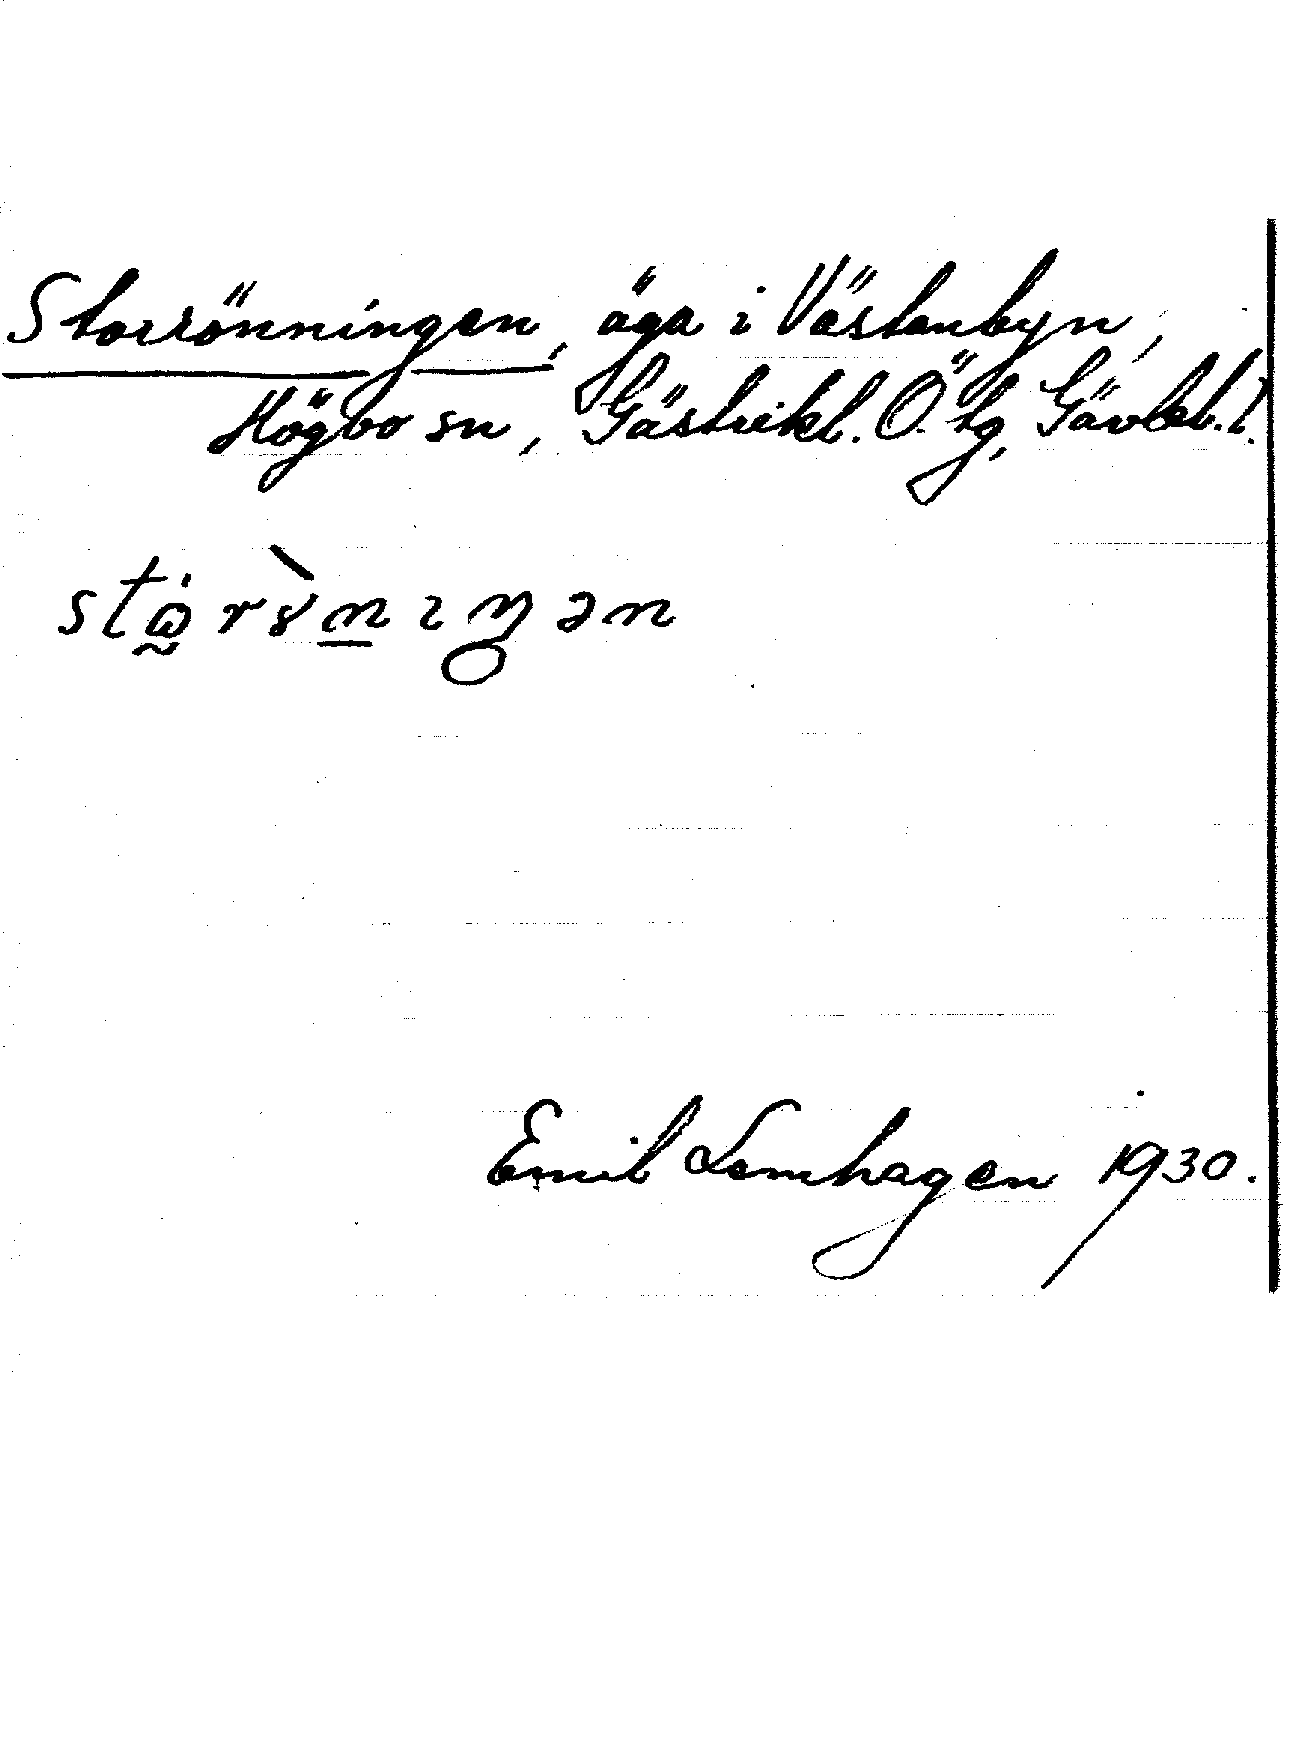 Storrönningen, äga i Västanbyn,
Högbo sn, Gästrikl. Ö. tg, Gävleb. l.
Emil Lemhagen 1930.